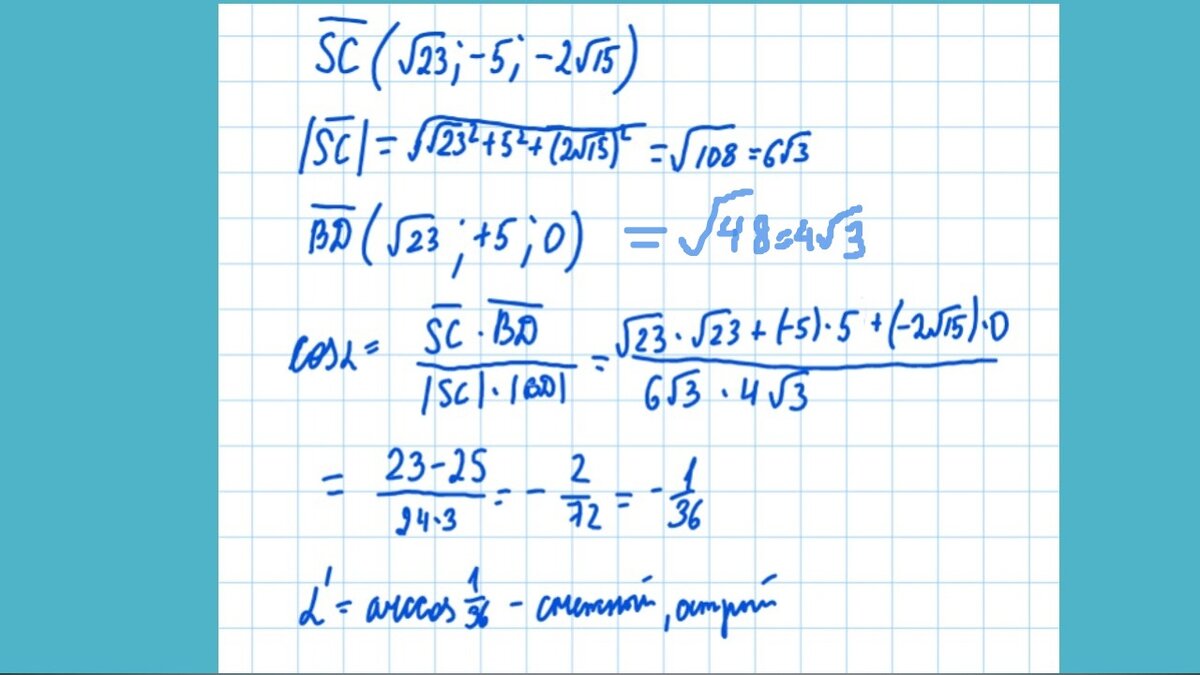 SC (√23; -5; -2√15)
|SC| = √(√23² + 5² + (2√15)²) = √108 = 6√3
BD (√23; +5; 0) = √48 = 4√3
cos α = (SC · BD) / (|SC| · |BD|) = (√23 · √23 + (-5) · 5 + (-2√15) · 0) / (6√3 · 4√3)
= (23 - 25) / (24 · 3) = - 2/72 = - 1/36
α' = arccos 1/36 - смежный, острый